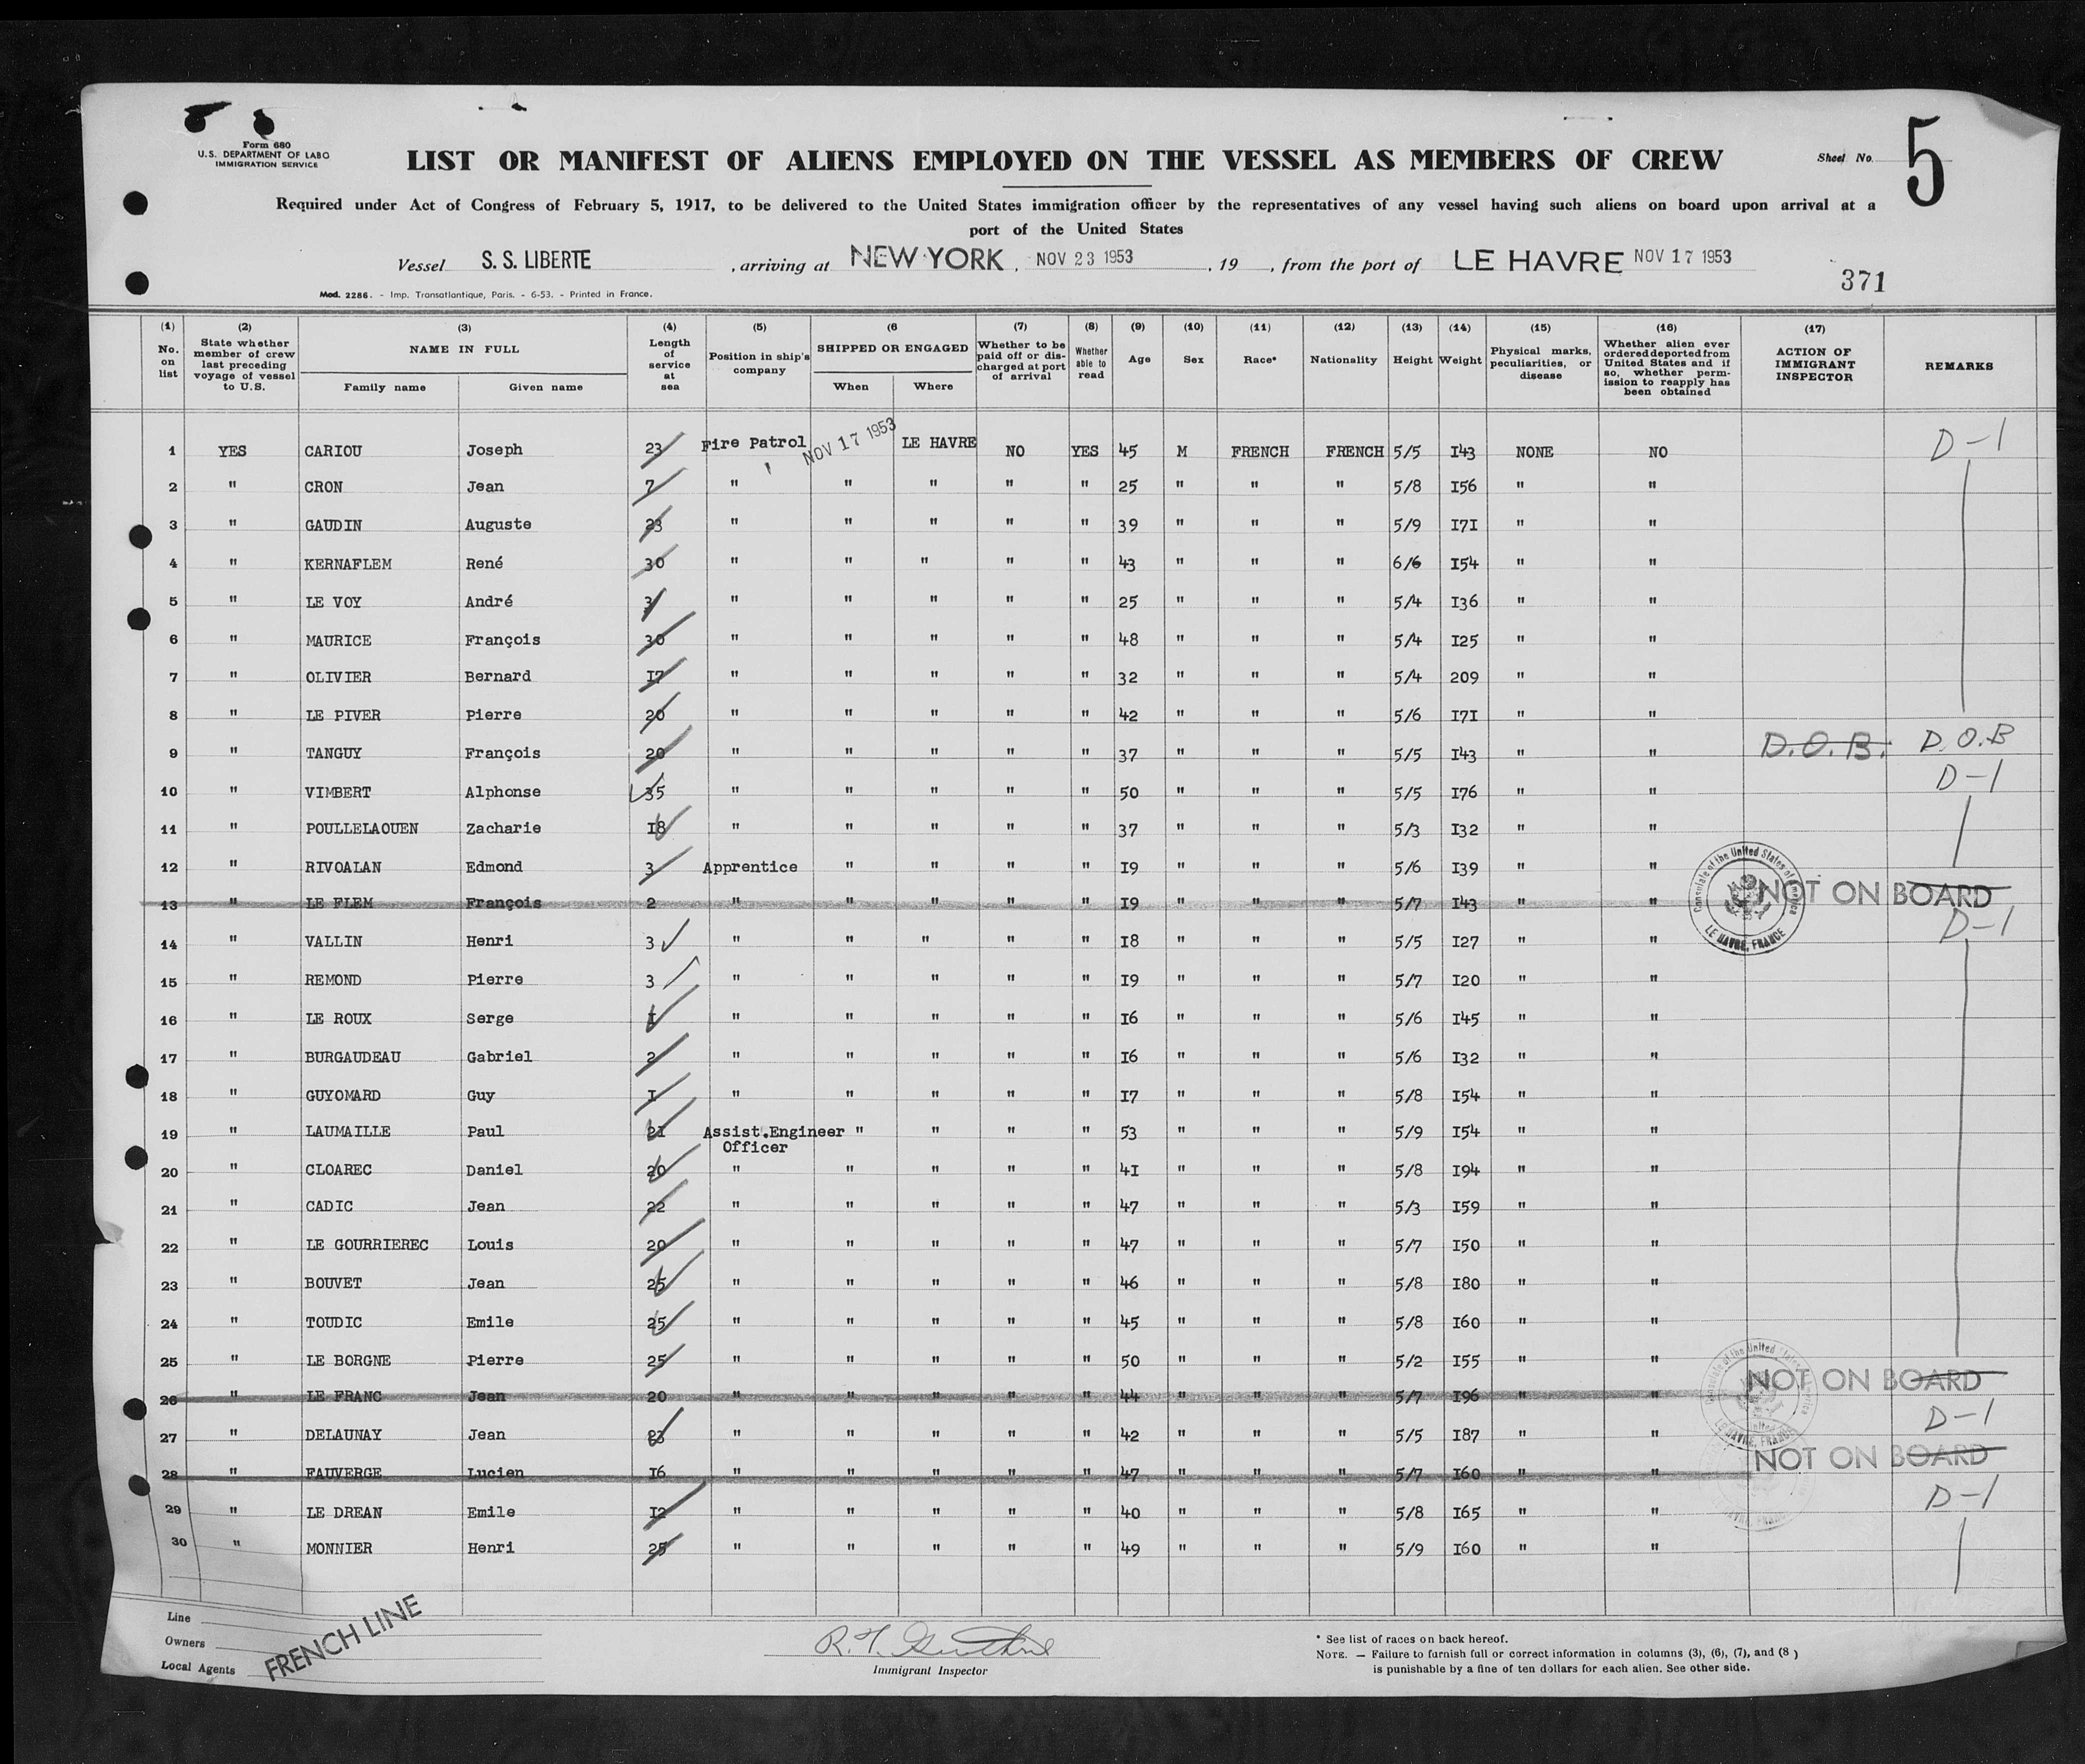 Form 680
U.S. DEPARTMENT OF LABO
IMMIGRATION SERVICE
LIST OR MANIFEST OF ALIENS EMPLOYED ON THE VESSEL AS MEMBERS OF CREW
Sheet No. 5
Required under Act of Congress of February 5, 1917, to be delivered to the United States immigration officer by the representatives of any vessel having such aliens on board upon arrival at a
port of the United States
Vessel S. S. LIBERTE, arriving at NEW YORK, NOV 23 1953, 19, from the port of LE HAVRE NOV 17 1953
371
Mod. 2286. - Imp. Transatlantique, Paris. - 6-53. - Printed in France.
(1) No. on list (2) State whether member of crew last preceding voyage of vessel to U.S. (3) NAME IN FULL Family name Given name (4) Length of service at sea (5) Position in ship's company (6 SHIPPED OR ENGAGED When Where (7) Whether to be paid off or discharged at port of arrival (8) Whether able to read (9) Age (10) Sex (11) Race* (12) Nationality (13) Height (14) Weight (15) Physical marks, peculiarities, or disease (16) Whether alien ever ordered deported from United States and if so, whether permission to reapply has been obtained (17) ACTION OF IMMIGRANT INSPECTOR REMARKS
1 YES CARIOU Joseph 23 Fire Patrol NOV 17 1953 LE HAVRE NO YES 45 M FRENCH FRENCH 5/5 I43 NONE NO D-1
2 " CRON Jean 7 " " " " " 25 " " " 5/8 I56 " "
3 " GAUDIN Auguste 23 " " " " " 39 " " " 5/9 I7I " "
4 " KERNAFLEM René 30 " " " " " 43 " " " 6/6 I54 " "
5 " LE VOY André 3 " " " " " 25 " " " 5/4 I36 " "
6 " MAURICE François 30 " " " " " 48 " " " 5/4 I25 " "
7 " OLIVIER Bernard I7 " " " " " 32 " " " 5/4 209 " "
8 " LE PIVER Pierre 20 " " " " " 42 " " " 5/6 I7I " "
9 " TANGUY François 20 " " " " " 37 " " " 5/5 I43 " " D.O.B. D.O.B
10 " VIMBERT Alphonse 35 " " " " " 50 " " " 5/5 I76 " " D-1
11 " POULLELAOUEN Zacharie I8 " " " " " 37 " " " 5/3 I32 " "
12 " RIVOALAN Edmond 3 Apprentice " " " " I9 " " " 5/6 I39 " "
13 " LE FLEM François 2 " " " " " I9 " " " 5/7 I43 " " NOT ON BOARD
Consulate of the United States of America LE HAVRE, FRANCE
14 " VALLIN Henri 3 " " " " " I8 " " " 5/5 I27 " " D-1
15 " REMOND Pierre 3 " " " " " I9 " " " 5/7 I20 " "
16 " LE ROUX Serge I " " " " " I6 " " " 5/6 I45 " "
17 " BURGAUDEAU Gabriel 2 " " " " " I6 " " " 5/6 I32 " "
18 " GUYOMARD Guy I " " " " " I7 " " " 5/8 I54 " "
19 " LAUMAILLE Paul 2I Assist.Engineer Officer " " " " 53 " " " 5/9 I54 " "
20 " CLOAREC Daniel 20 " " " " " 4I " " " 5/8 I94 " "
21 " CADIC Jean 22 " " " " " 47 " " " 5/3 I59 " "
22 " LE GOURRIEREC Louis 20 " " " " " 47 " " " 5/7 I50 " "
23 " BOUVET Jean 25 " " " " " 46 " " " 5/8 I80 " "
24 " TOUDIC Emile 25 " " " " " 45 " " " 5/8 I60 " "
25 " LE BORGNE Pierre 25 " " " " " 50 " " " 5/2 I55 " "
26 " LE FRANC Jean 20 " " " " " 44 " " " 5/7 I96 " " NOT ON BOARD
27 " DELAUNAY Jean " " " " " 42 " " " 5/5 I87 " " D-1
28 " FAUVERGE Lucien I6 " " " " " 47 " " " 5/7 I60 " " NOT ON BOARD
29 " LE DREAN Emile I2 " " " " " 40 " " " 5/8 I65 " " D-1
30 " MONNIER Henri 25 " " " " " 49 " " " 5/9 I60 " "
Line
Owners
Local Agents
FRENCH LINE
Immigrant Inspector
* See list of races on back hereof.
NOTE. — Failure to furnish full or correct information in columns (3), (6), (7), and (8 )
is punishable by a fine of ten dollars for each alien. See other side.